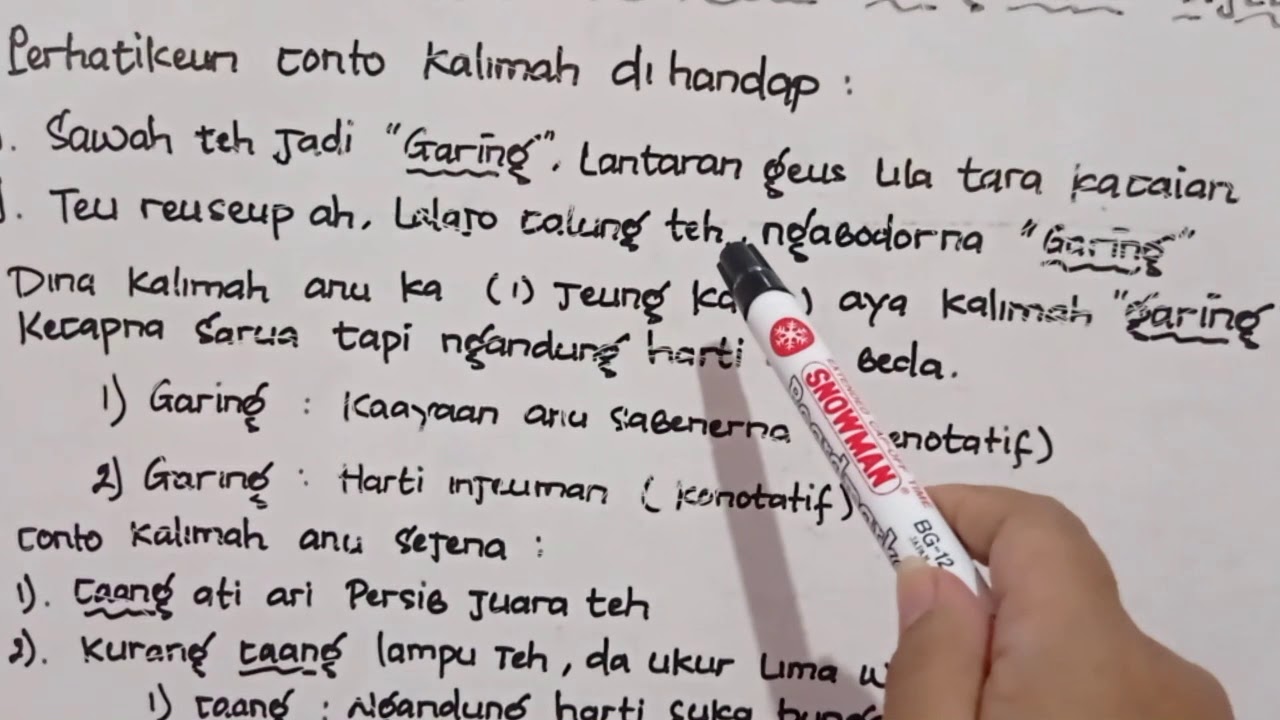 Perhatikeun conto kalimah di handap :
. Sawah teh Jadi "Garing". Lantaran geus lila tara kacaian
. Teu reuseup ah, Lalajo calung teh, ngabodorna "Garing"
Dina kalimah anu ka (1) Jeung ka ) aya kalimah "garing
Kecapna sarua tapi ngandung harti beda.
1) Garing : Kaayaan anu sabenerna enotatif)
2) Garing : Harti injeuman (konotatif)
conto kalimah anu sejena :
1). caang ati ari Persib Juara teh
2). Kurang caang lampu teh, da ukur lima w
1) caang : Ngandung harti suka
SNOWMAN
BG-12